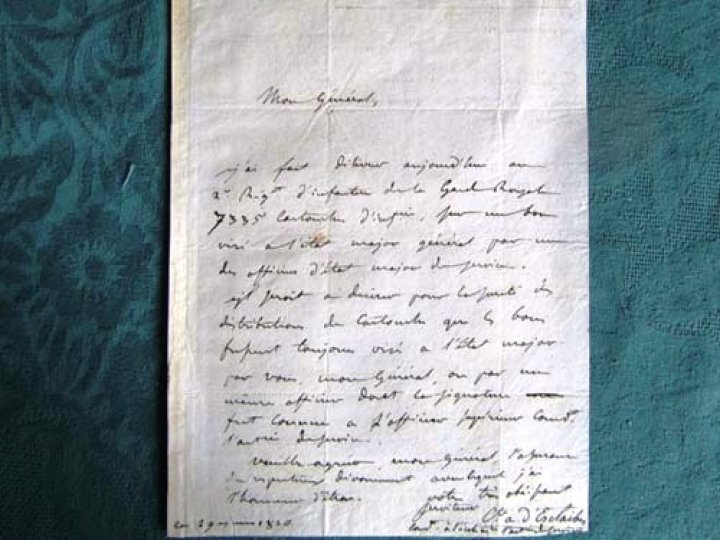 Mon Général,
j'ai fait délivrer aujourd'hui au
2e Rég.t d'infanterie de la Garde Royale
7335 Cartouches d'infrie. sur un bon
visé à l'état major général par un
des officiers d'état major de service.
il seroit à désirer pour la sureté des
distributions de Cartouches que les bons
fussent toujours visé à l'état major
par vous, mon Général, ou par un
même officier dont la signature
fut connue à l'officier supérieur Comdt.
de service.
veuillez agréer, mon Général, l'assurance
du respectueux dévouement avec lequel j'ai
l'honneur d'être.
votre très obéissant
serviteur
Cte a. d'Esclaibes
1830